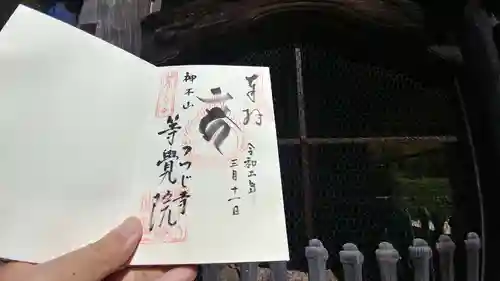 奉拝
令和二年
三月十一日
神木山
等覺院
つつじ寺